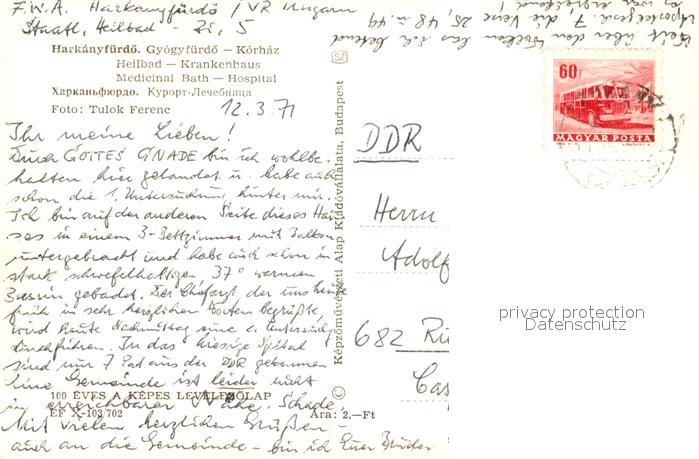 F.W.A. Harkányfürdő / VR Ungarn
Staatl. Heilbad - Zi, 5
Harkányfürdő. Gyógyfürdő — Kórház
Heilbad — Krankenhaus
Medicinal Bath — Hospital
Харканьфюрдо. Курорт-Лечебница
Foto: Tulok Ferenc
12.3.71
Ihr meine Lieben!
Durch GOTTES GNADE bin ich wohlbe-
halten hier gelandet u. habe auch
schon die 1. Untersuchung hinter mir.
Ich bin auf der anderen Seite dieses Hau-
ses in einem 3-Bettzimmer mit Balkon
untergebracht und habe auch schon in
stark schwefelhaltigen 37° warmen
Bassin gebadet. Der Chefarzt der uns heute
früh in sehr herzlichen Worten begrüßte,
wird heute Nachmittag eine 2. Untersuchg
durchführen. In das hiesige Spital
sind nur 7 Pat aus der DDR gekommen
Eine Gemeinde ist leider nicht
in erreichbarer Nähe. Schade,
100 ÉVES A KÉPES LEVELEZŐLAP
EF X-103/702
Ára: 2,—Ft
Mit vielen herzlichen Grüßen -
auch an die Gemeinde - bin ich Euer Bruder
Képzőművészeti Alap Kiadóvállalata, Budapest
SZ
©
Weit über den Wolken las ich betend
Apostelgesch. 7, die Verse 25, 48 u. 49
60f
MAGYAR POSTA
DDR
Herrn
Adolf
682
privacy protection
Datenschutz